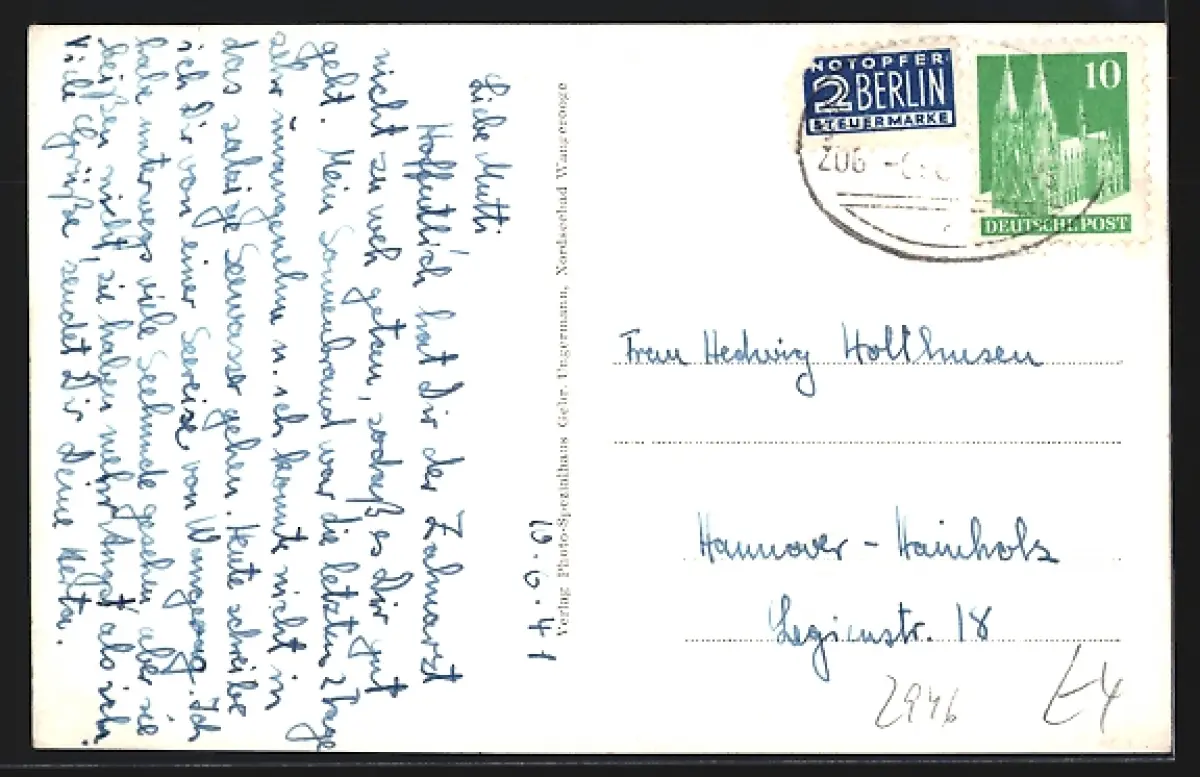 10. 6. 41
Liebe Mutti
Hoffentlich hat Dir der Zahnarzt
nicht zu weh getan, sodaß es Dir gut
geht. Mein Sonnenbrand war die letzten 2 Tage
sehr unangenehm u. ich konnte nicht in
das salzige Seewasser gehen. Heute schreibe
ich Dir von einer Seereise von Wangeroog. Ich
habe unterwegs viele Seehunde gesehen, aber sie
beißen nicht, sie haben mehr Angst als ich.
Viele Grüße, sendet Dir Deine
Verlag Photo-Spezialhaus Gebr. Ungermann, Nordseebad Wangerooge
NOTOPFER
2 BERLIN
STEUERMARKE
10
DEUTSCHE POST
Frau Hedwig Holthusen
Hannover - Hainholz
Legienstr. 18
2946